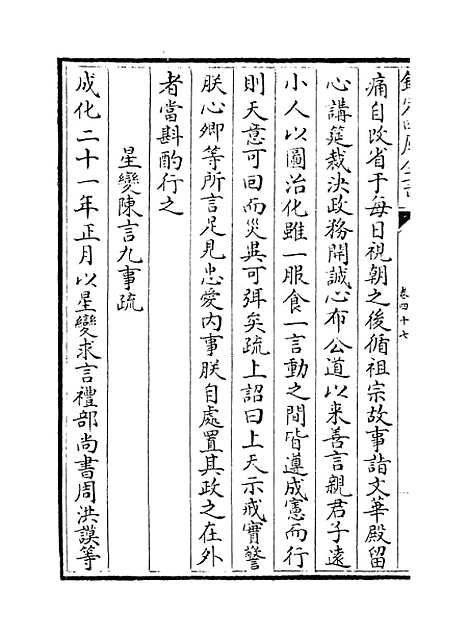 欽定四庫全書
卷四十七
痛自改省于每日視朝之後循祖宗故事詣文華殿留
心講筵裁決政務開誠心布公道以来善言親君子遠
小人以圖治化雖一服食一言動之間皆遵成憲而行
則天意可回而災異可弭矣疏上詔曰上天示戒實警
朕心卿等所言足見忠愛内事朕自處置其政之在外
者當斟酌行之
星變陳言九事疏
成化二十一年正月以星變求言禮部尚書周洪謨等